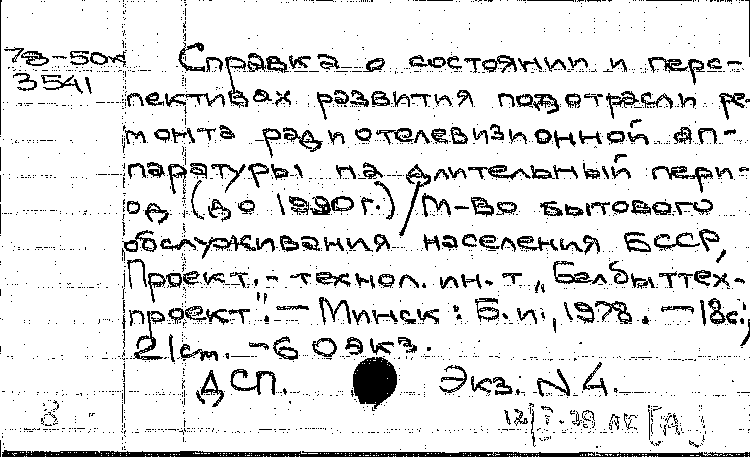 78-50к Справка о состоянии и перс-
3541
пективах развития подотрасли ре-
монта радиотелевизионной ап-
паратуры на длительный пери-
од (до 1990г.) / М-во бытового
обслуживания населения БССР,
Проект.- технол. ин-т „Белбыттех-
проект". — Минск: Б.и., 1978. — 18с.,
21 см. - 60экз.
ДСП. Экз. N 4.
8